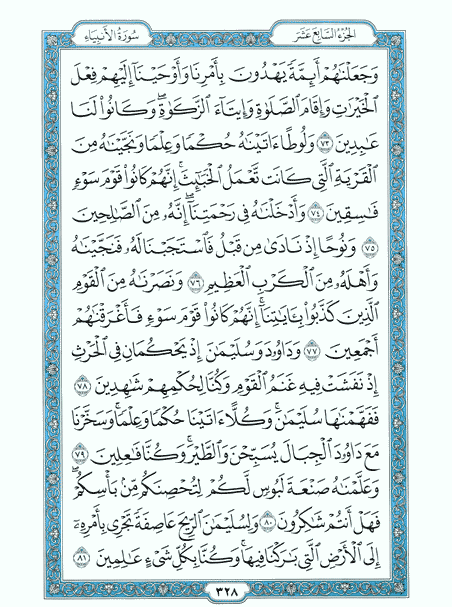 سُورَةُ الأَنبِيَاءِ الجُزْءُ السَّابِعَ عَشَرَ
وَجَعَلْنَٰهُمْ أَئِمَّةً يَهْدُونَ بِأَمْرِنَا وَأَوْحَيْنَآ إِلَيْهِمْ فِعْلَ
ٱلْخَيْرَٰتِ وَإِقَامَ ٱلصَّلَوٰةِ وَإِيتَآءَ ٱلزَّكَوٰةِۖ وَكَانُوا۟ لَنَا
عَٰبِدِينَ ٧٣ وَلُوطًا ءَاتَيْنَٰهُ حُكْمًا وَعِلْمًا وَنَجَّيْنَٰهُ مِنَ
ٱلْقَرْيَةِ ٱلَّتِى كَانَت تَّعْمَلُ ٱلْخَبَٰٓئِثَۚ إِنَّهُمْ كَانُوا۟ قَوْمَ سَوْءٍ
فَٰسِقِينَ ٧٤ وَأَدْخَلْنَٰهُ فِى رَحْمَتِنَآۖ إِنَّهُۥ مِنَ ٱلصَّٰلِحِينَ
٧٥ وَنُوحًا إِذْ نَادَىٰ مِن قَبْلُ فَٱسْتَجَبْنَا لَهُۥ فَنَجَّيْنَٰهُ
وَأَهْلَهُۥ مِنَ ٱلْكَرْبِ ٱلْعَظِيمِ ٧٦ وَنَصَرْنَٰهُ مِنَ ٱلْقَوْمِ
ٱلَّذِينَ كَذَّبُوا۟ بِـَٔايَٰتِنَآۚ إِنَّهُمْ كَانُوا۟ قَوْمَ سَوْءٍ فَأَغْرَقْنَٰهُمْ
أَجْمَعِينَ ٧٧ وَدَاوُۥدَ وَسُلَيْمَٰنَ إِذْ يَحْكُمَانِ فِى ٱلْحَرْثِ
إِذْ نَفَشَتْ فِيهِ غَنَمُ ٱلْقَوْمِ وَكُنَّا لِحُكْمِهِمْ شَٰهِدِينَ ٧٨
فَفَهَّمْنَٰهَا سُلَيْمَٰنَۚ وَكُلًّا ءَاتَيْنَا حُكْمًا وَعِلْمًاۚ وَسَخَّرْنَا
مَعَ دَاوُۥدَ ٱلْجِبَالَ يُسَبِّحْنَ وَٱلطَّيْرَۚ وَكُنَّا فَٰعِلِينَ ٧٩
وَعَلَّمْنَٰهُ صَنْعَةَ لَبُوسٍ لَّكُمْ لِتُحْصِنَكُم مِّنۢ بَأْسِكُمْۖ
فَهَلْ أَنتُمْ شَٰكِرُونَ ٨٠ وَلِسُلَيْمَٰنَ ٱلرِّيحَ عَاصِفَةً تَجْرِى بِأَمْرِهِۦٓ
إِلَى ٱلْأَرْضِ ٱلَّتِى بَٰرَكْنَا فِيهَاۚ وَكُنَّا بِكُلِّ شَىْءٍ عَٰلِمِينَ ٨١
٣٢٨